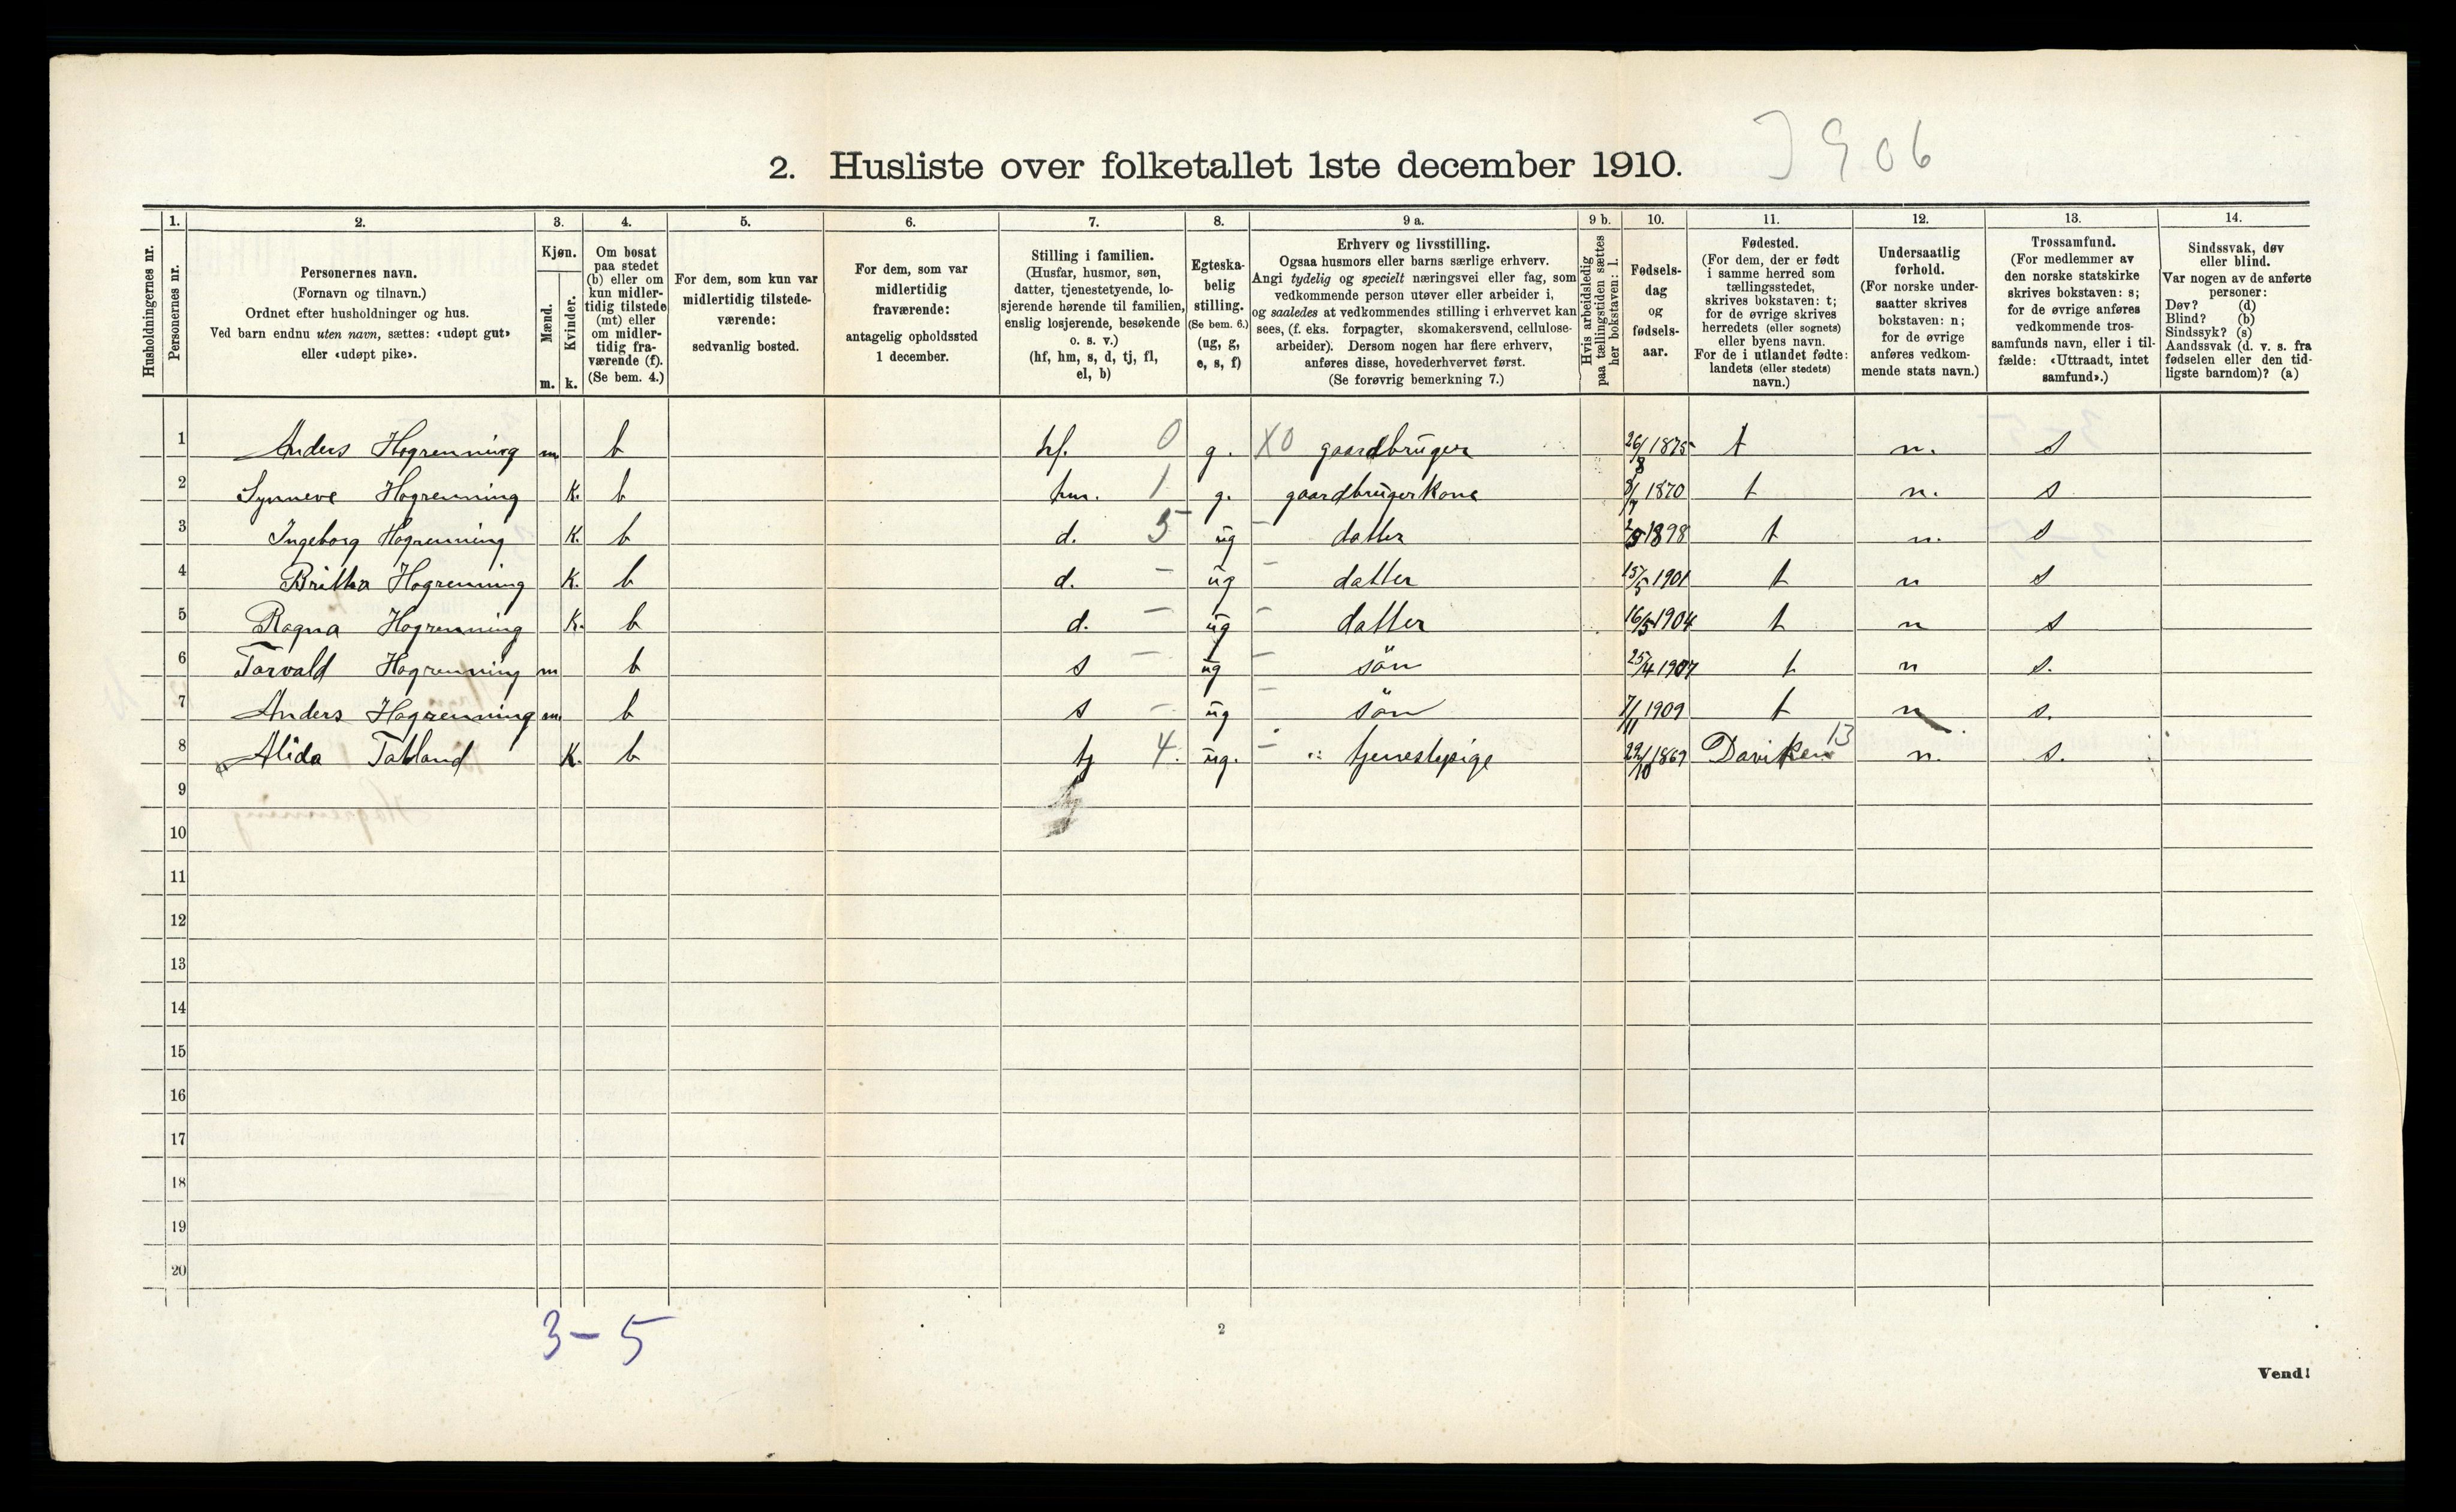 2. Husliste over folketallet 1ste december 1910.
Husholdningernes nr.
1. Personernes nr.
2. Personernes navn. (Fornavn og tilnavn.) Ordnet efter husholdninger og hus. Ved barn endnu uten navn, sættes: «udøpt gut» eller «udøpt pike».
3. Kjøn. Mænd. m. Kvinder. k.
4. Om bosat paa stedet (b) eller om kun midlertidig tilstede (mt) eller om midlertidig fraværende (f). (Se bem. 4.)
5. For dem, som kun var midlertidig tilstedeværende: sedvanlig bosted.
6. For dem, som var midlertidig fraværende: antagelig opholdssted 1 december.
7. Stilling i familien. (Husfar, husmor, søn, datter, tjenestetyende, losjerende hørende til familien, enslig losjerende, besøkende o. s. v.) (hf, hm, s, d, tj, fl, el, b)
8. Egteskabelig stilling. (Se bem. 6.) (ug, g, e, s, f)
9 a. Erhverv og livsstilling. Ogsaa husmors eller barns særlige erhverv. Angi tydelig og specielt næringsvei eller fag, som vedkommende person utøver eller arbeider i, og saaledes at vedkommendes stilling i erhvervet kan sees, (f. eks. forpagter, skomakersvend, cellulosearbeider). Dersom nogen har flere erhverv, anføres disse, hovederhvervet først. (Se forøvrig bemerkning 7.)
9 b. Hvis arbeidsledig paa tællingstiden sættes her bokstaven: l.
10. Fødselsdag og fødselsaar.
11. Fødested. (For dem, der er født i samme herred som tællingsstedet, skrives bokstaven: t; for de øvrige skrives herredets (eller sognets) eller byens navn. For de i utlandet fødte: landets (eller stedets) navn.)
12. Undersaatlig forhold. (For norske undersaatter skrives bokstaven: n; for de øvrige anføres vedkommende stats navn.)
13. Trossamfund. (For medlemmer av den norske statskirke skrives bokstaven: s; for de øvrige anføres vedkommende trossamfunds navn, eller i tilfælde: «Uttraadt, intet samfund».)
14. Sindssvak, døv eller blind. Var nogen av de anførte personer: Døv? (d) Blind? (b) Sindssyk? (s) Aandssvak (d. v. s. fra fødselen eller den tidligste barndom)? (a)
1 Anders Hogrenning m b hf. 0 g. X0 gaardbruger 26/8 1875 t n. s
2 Synneve Hogrenning K. b hm. 1 g. gaardbrugerkone 8/7 1870 t n. s
3 Ingeborg Hogrenning K. b d. 5 ug – datter 2/5 1898 t n. s
4 Britha Hogrenning K. b d. – ug – datter 15/5 1901 t n s
5 Ragna Hogrenning K. b d. – ug – datter 16/5 1904 t n s
6 Torvald Hogrenning m b s – ug – sön 25/4 1907 t n s.
7 Anders Hogrenning m. b s – ug – sön 7/11 1909 t n s.
8 Alida Tatland K. b tj 4. ug. – tjenestepige 22/10 1869 Daviken 13 n. s.
9
10
11
12
13
14
15
16
17
18
19
20
3 – 5
2
Vend!